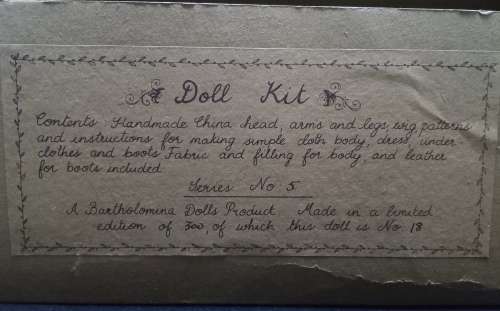 Doll Kit
Contents : Handmade China head, arms and legs, wig, patterns
and instructions for making simple cloth body, dress, under
clothes and boots Fabric and filling for body, and leather
for boots included
Series No 5
A Bartholomina Dolls Product Made in a limited
edition of 300, of which this doll is No 13